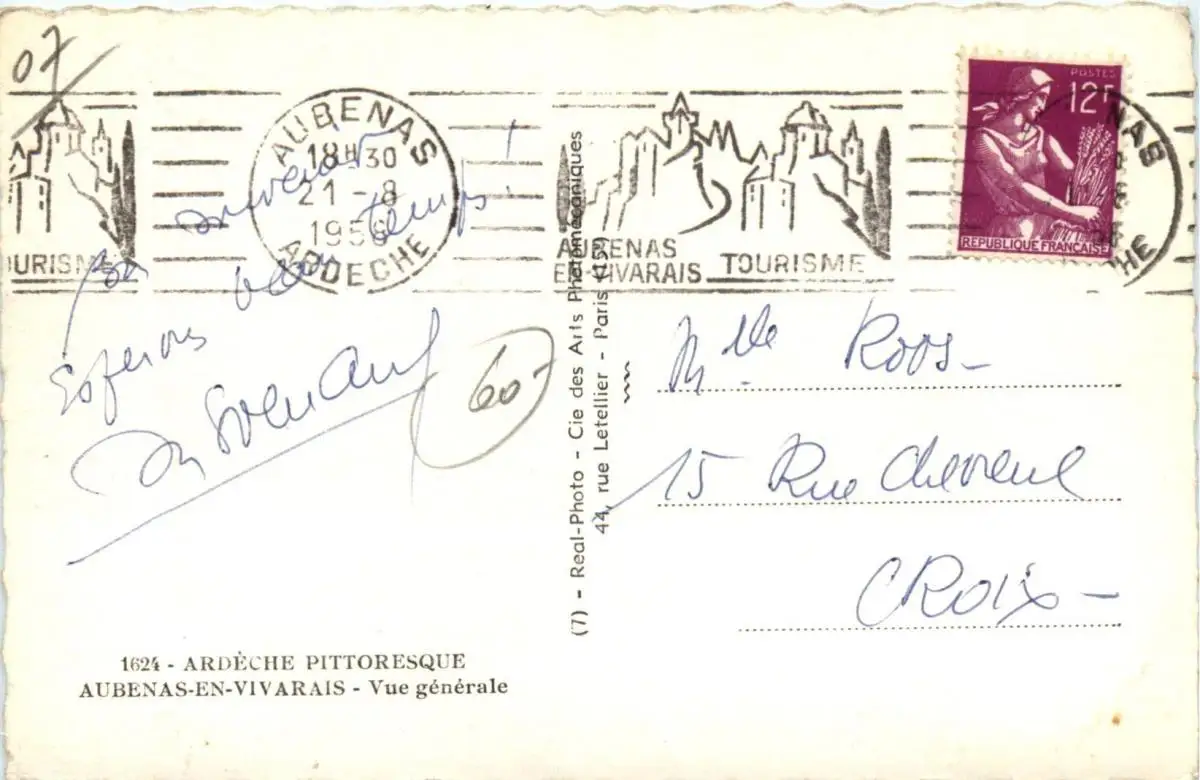 07
AUBENAS
18H30
21 - 8
1956
ARDECHE
TOURISME
AUBENAS
EN-VIVARAIS TOURISME
POSTES
12F
REPUBLIQUE FRANÇAISE
NAS
CHE
Bon souvenir
Espérons beau temps!
60-
(7) - Real-Photo - Cie des Arts Photomécaniques
44, rue Letellier - Paris (15)
Mlle Roos-
15 Rue Chevreul
CROIX-
1624 - ARDÈCHE PITTORESQUE
AUBENAS-EN-VIVARAIS - Vue générale